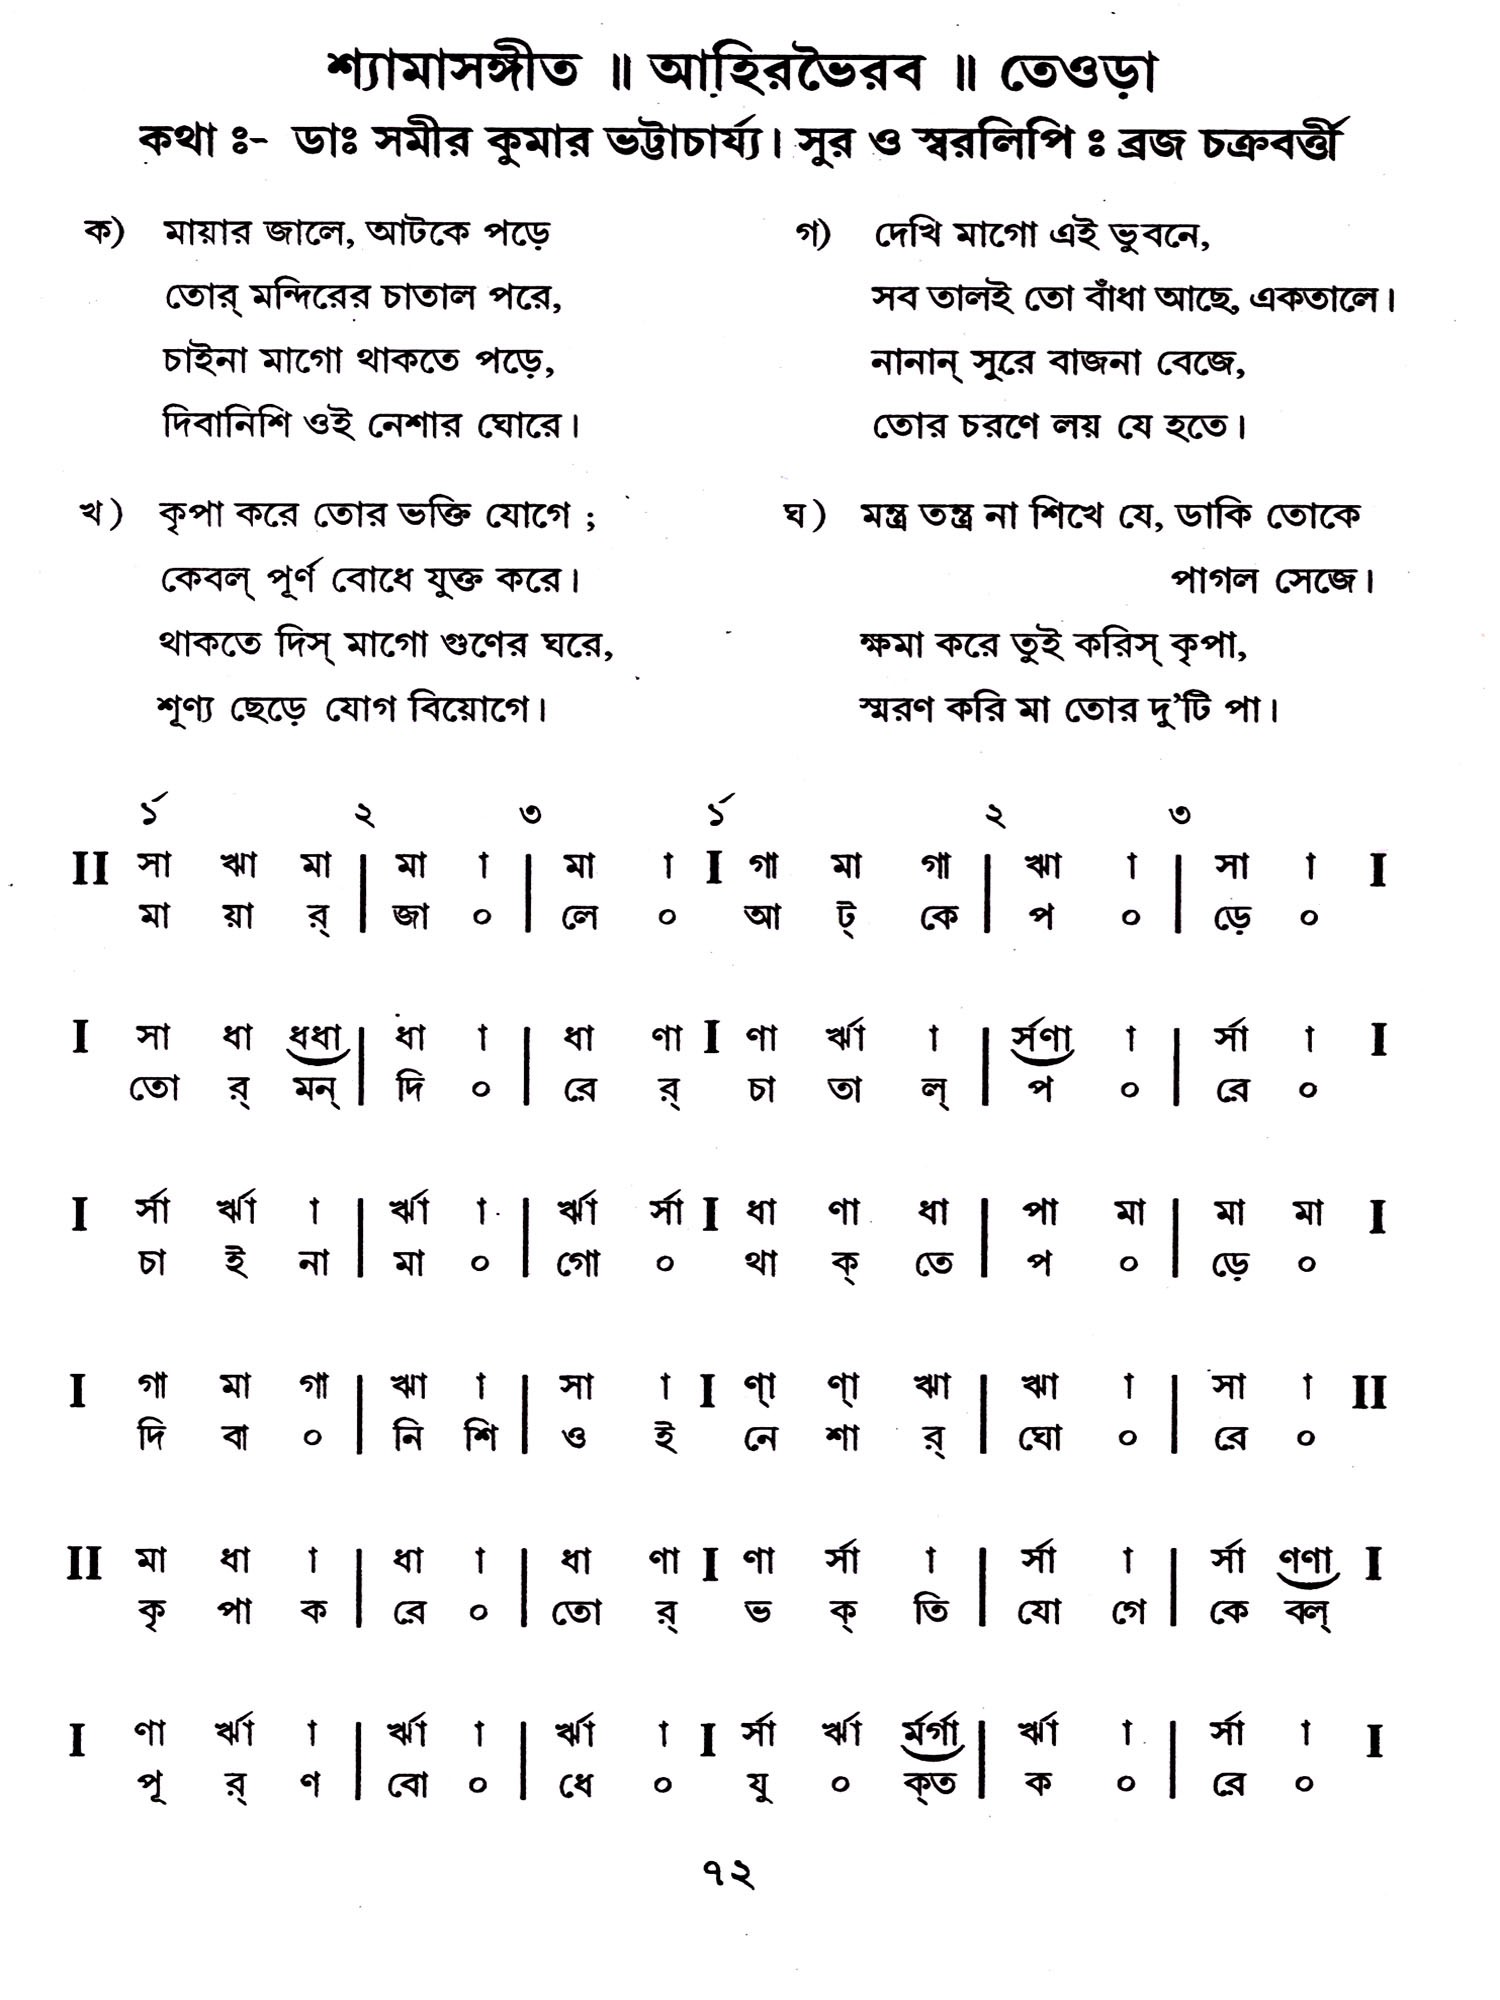 শ্যামাসঙ্গীত ॥ আহিরভৈরব ॥ তেওড়া
কথা ঃ- ডাঃ সমীর কুমার ভট্টাচার্য্য। সুর ও স্বরলিপি ঃ ব্রজ চক্রবর্ত্তী
ক) মায়ার জালে, আটকে পড়ে
তোর্ মন্দিরের চাতাল পরে,
চাইনা মাগো থাকতে পড়ে,
দিবানিশি ওই নেশার ঘোরে।
খ) কৃপা করে তোর ভক্তি যোগে ;
কেবল্ পূর্ণ বোধে যুক্ত করে।
থাকতে দিস্ মাগো গুণের ঘরে,
শূণ্য ছেড়ে যোগ বিয়োগে।
গ) দেখি মাগো এই ভুবনে,
সব তালই তো বাঁধা আছে, একতালে।
নানান্ সুরে বাজনা বেজে,
তোর চরণে লয় যে হতে।
ঘ) মন্ত্র তন্ত্র না শিখে যে, ডাকি তোকে
পাগল সেজে।
ক্ষমা করে তুই করিস্ কৃপা,
স্মরণ করি মা তোর দু'টি পা।
র্১ ২ ৩ র্১ ২ ৩
II সা ঋা মা | মা া | মা া I গা মা গা | ঋা া | সা া I
মা য়া র্ | জা ০ | লে ০ আ ট্ কে | প ০ | ড়ে ০
I সা ধা ধধা | ধা া | ধা ণা I ণা র্ঋা া | র্সণা া | র্সা া I
তো র্ মন্ | দি ০ | রে র্ চা তা ল্ | প ০ | রে ০
I র্সা র্ঋা া | র্ঋা া | র্ঋা র্সা I ধা ণা ধা | পা মা | মা মা I
চা ই না | মা ০ | গো ০ থা ক্ তে | প ০ | ড়ে ০
I গা মা গা | ঋা া | সা া I ণ্া ণ্া ঋা | ঋা া | সা া II
দি বা ০ | নি শি | ও ই নে শা র্ | ঘো ০ | রে ০
II মা ধা া | ধা া | ধা ণা I ণা র্সা া | র্সা া | র্সা ণণা I
কৃ পা ক | রে ০ | তো র্ ভ ক্ তি | যো গে | কে বল্
I ণা র্ঋা া | র্ঋা া | র্ঋা া I র্সা র্ঋা র্মর্গা | র্ঋা া | র্সা া I
পূ র্ ণ | বো ০ | ধে ০ যু ০ ক্ত | ক ০ | রে ০
৭২